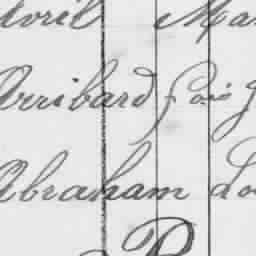 Avril Ma
Arribard fois J
Abraham Lo
B